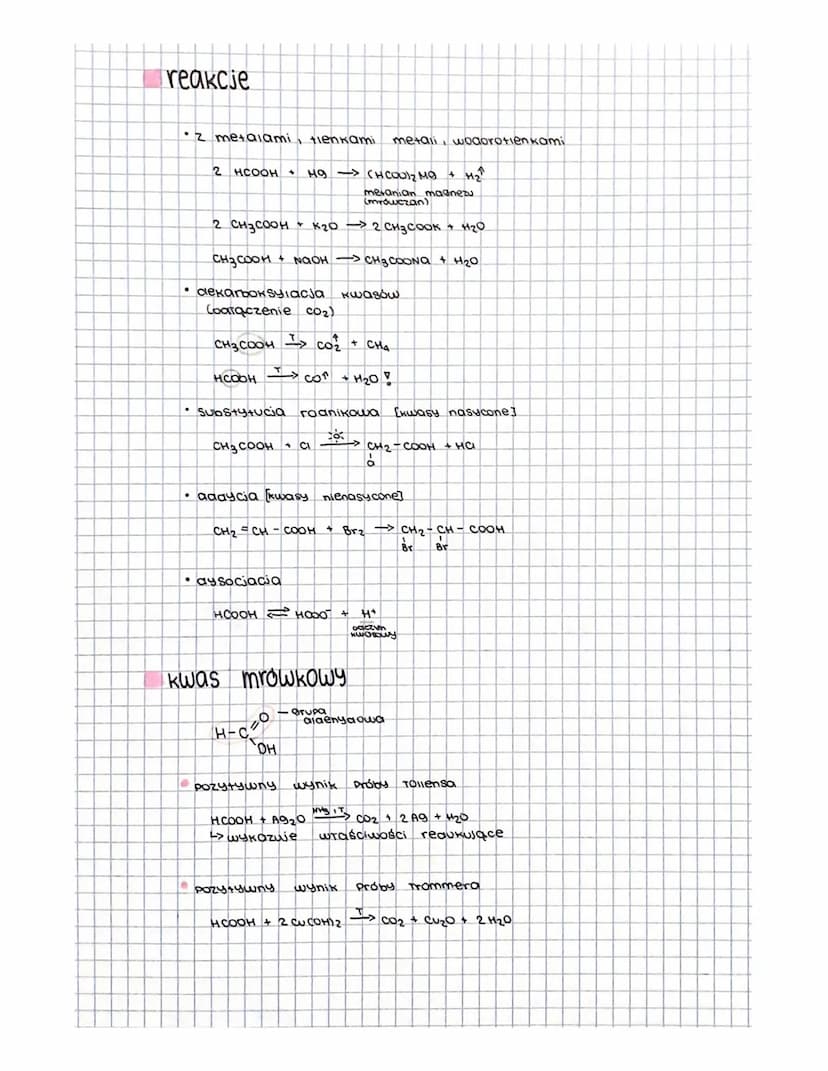 reakcje
• z metalami, tlenkami metali, wodorotlenkami
2 HCOOH + Mg → (HCOO)2Mg + H2↑
metanian magnezu
(mrówczan)
2 CH3COOH + K2O → 2 CH3COOK + H2O
CH3COOH + NaOH → CH3COONa + H2O
• dekarboksylacja kwasów
(odłączenie CO2)
CH3COOH T→ CO2↑ + CH4
HCOOH T→ CO↑ + H2O !
• substytucja rodnikowa [kwasy nasycone]
CH3COOH + Cl → CH2-COOH + HCl
Cl
• addycja [kwasy nienasycone]
CH2=CH-COOH + Br2 → CH2-CH-COOH
Br Br
• dysocjacja
HCOOH ⇄ HCOO⁻ + H⁺
odczyn
kwasowy
kwas mrówkowy
O - grupa
aldehydowa
H-C
OH
• pozytywny wynik próby Tollensa
HCOOH + Ag2O NH3, T→ CO2 + 2 Ag + H2O
↳ wykazuje właściwości redukujące
• pozytywny wynik próby Trommera
HCOOH + 2 Cu(OH)2 T→ CO2 + Cu2O + 2 H2O